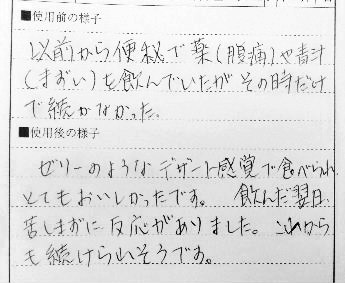 ■使用前の様子
以前から便秘で薬(腹痛)や青汁
(まずい)を飲んでいたがその時だけ
で続かなかった。
■使用後の様子
ゼリーのようなデザート感覚で食べられ
とてもおいしかったです。 飲んだ翌日
苦しまずに反応がありました。これから
も続けられそうです。